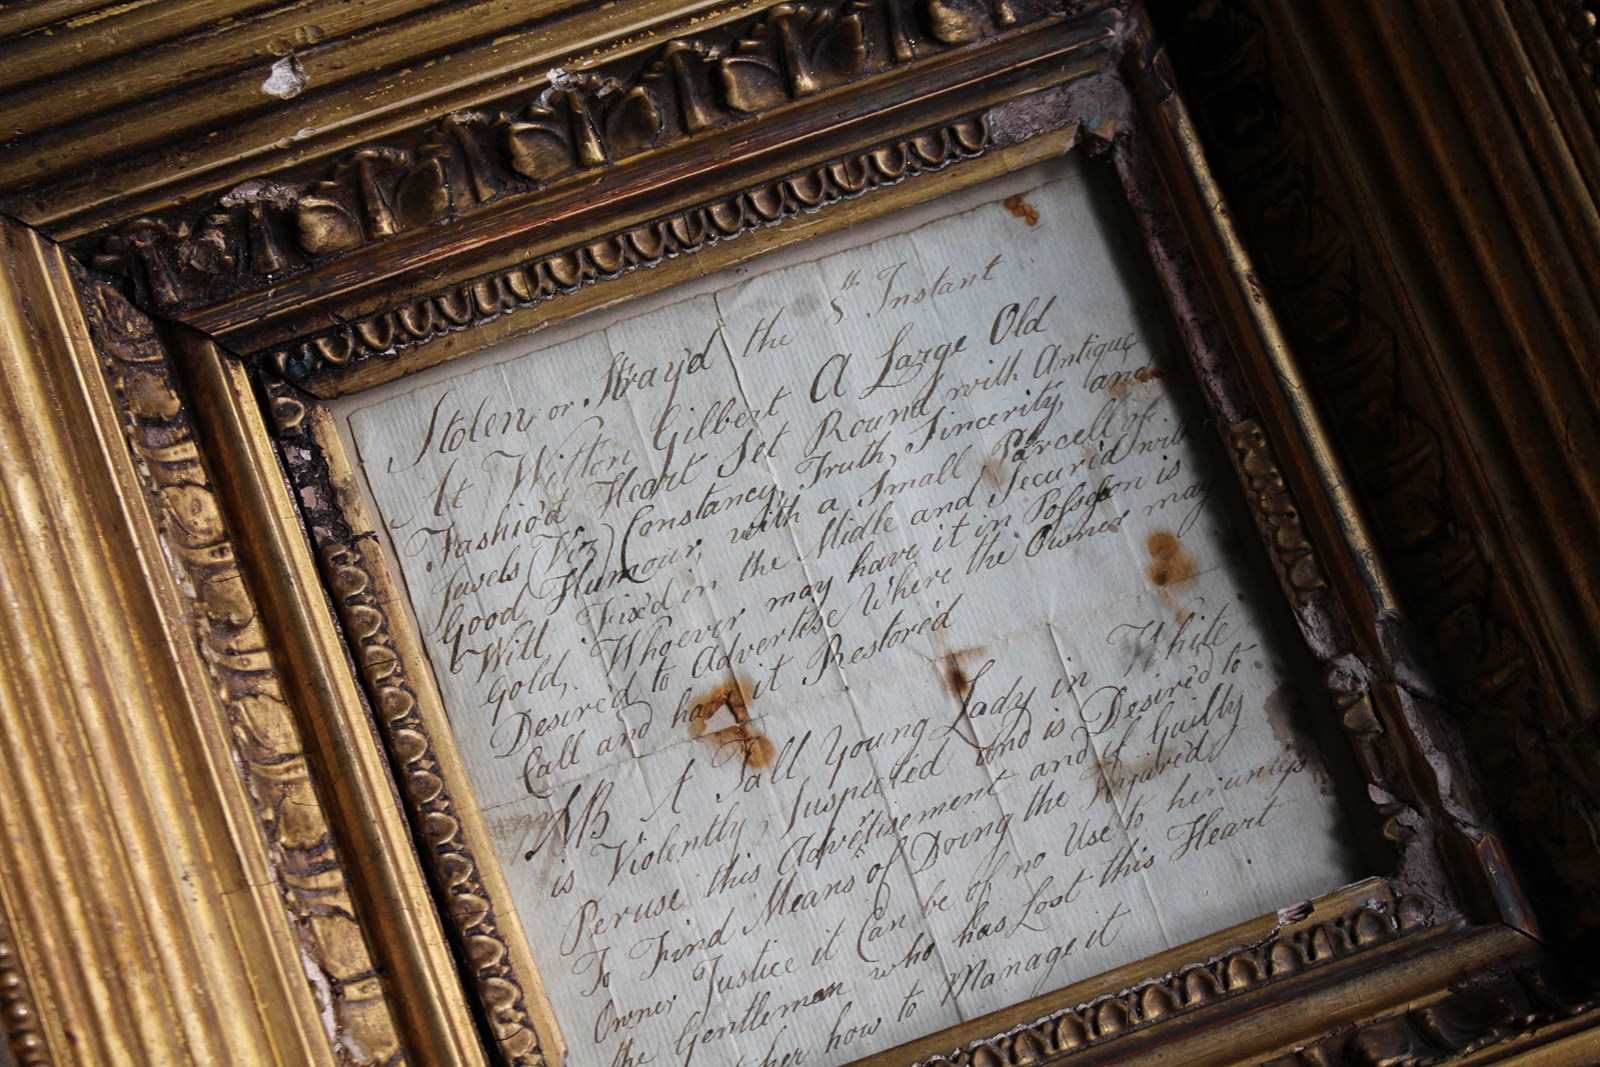 Stolen or Stray'd the 5th Instant
At Witton Gilbert A Large Old
Fashio'd Heart Set Round with Antique
Juvels (Viz) Constancy, Truth, Sincerity, and
Good Humour, with a Small Parcell of
Will Fix'd in the Midle and Secur'd with
Gold, Whoever may have it in Possession is
Desire'd to Advertise Where the Owner may
Call and have it Restore'd
NB A Tall Young Lady in White
is Violently Suspected and is Desire'd to
Peruse this Advertisement and if Guilty
To Find Means of Doing the Injured
Owner Justice it Can be of no Use to her unless
the Gentleman who has Lost this Heart
her how to Manage it